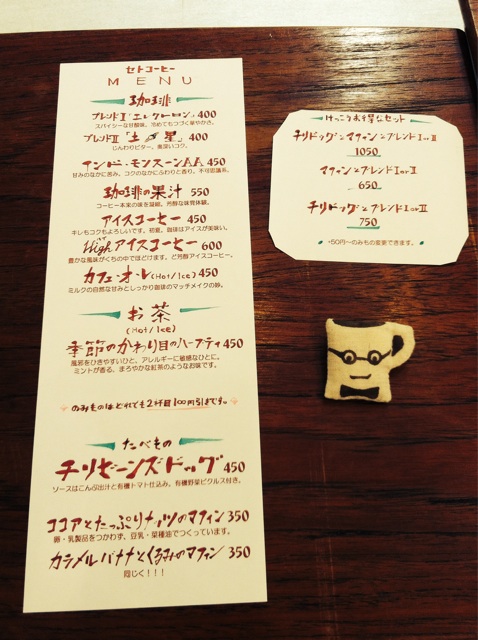 セトコーヒー
MENU
珈琲
ブレンドⅠ「エレクトロン」400
スパイシーな甘酸味。冷めてもつづく華やかさ。
ブレンドⅡ「土星」400
じんわりビター。奥深いコク。
インド・モンスーンAA 450
甘みのなかに苦み、コクのなかにふわりと香り。不可思議系。
珈琲の果汁 550
コーヒー本来の味を凝縮。芳醇な味覚体験。
アイスコーヒー 450
キレもコクもよろしいです。初夏、珈琲はアイスが美味い。
Highアイスコーヒー 600
豊かな風味がくちの中でほどけます。ど芳醇アイスコーヒー。
カフェ・オ・レ(Hot/Ice) 450
ミルクの自然な甘みとしっかり珈琲のマッチメイクの妙。
お茶
(Hot/Ice)
季節のかわり目のハーブティ 450
風邪をひきやすいひと、アレルギーに敏感なひとに。
ミントが香る、まろやかな紅茶のようなお味です。
のみものはどれでも2杯目100円引きです。
たべもの
チリビーンズドッグ 450
ソースはこんぶ出汁と有機トマト仕込み。有機野菜ピクルス付き。
ココアとたっぷりナッツのマフィン 350
卵・乳製品をつかわず、豆乳・菜種油でつくっています。
カラメルバナナとくるみのマフィン 350
同じく！！！
けっこうお得なセット
チリドッグとマフィンとブレンドⅠorⅡ
1050
マフィンとブレンドⅠorⅡ
650
チリドッグとブレンドⅠorⅡ
750
+50円〜のみもの変更できます。